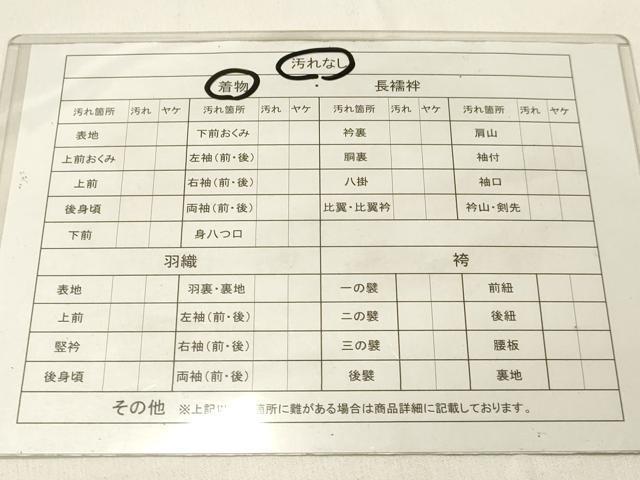 汚れなし
着物 ・ 長襦袢
汚れ箇所 汚れ ヤケ 汚れ箇所 汚れ ヤケ 汚れ箇所 汚れ ヤケ 汚れ箇所 汚れ ヤケ
表地 下前おくみ 衿裏 肩山
上前おくみ 左袖(前・後) 胴裏 袖付
上前 右袖(前・後) 八掛 袖口
後身頃 両袖(前・後) 比翼・比翼衿 衿山・剣先
下前 身八つ口
羽織 袴
表地 羽裏・裏地 一の襞 前紐
上前 左袖(前・後) 二の襞 後紐
竪衿 右袖(前・後) 三の襞 腰板
後身頃 両袖(前・後) 後襞 裏地
その他 ※上記以 箇所に難がある場合は商品詳細に記載しております。